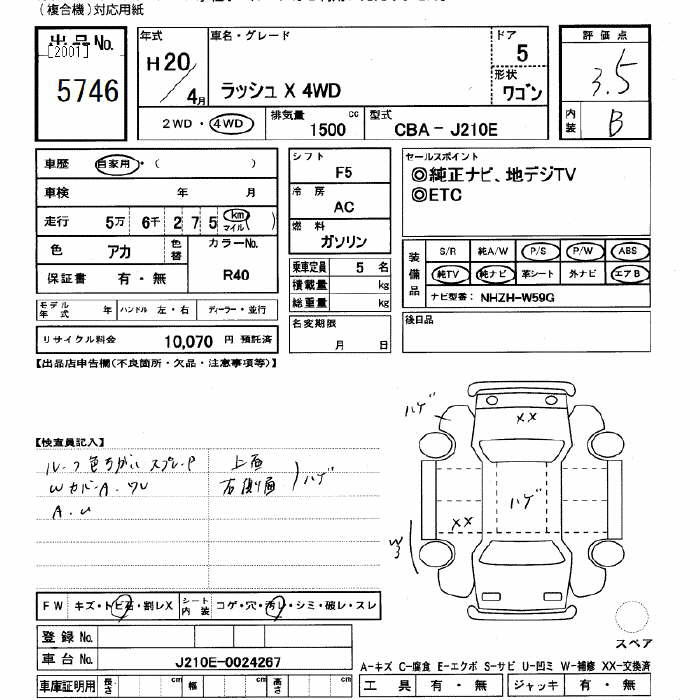 (複合機)対応用紙
出品No.
[2001]
5746
年式 H20/4月
車名・グレード
ラッシュ X 4WD
ドア 5
形状 ワゴン
評価点
3.5
内装 B
2WD・4WD
排気量 1500 cc
型式 CBA-J210E
車歴 自家用・( )
車検 年 月
走行 5万 6千 2 7 5 km マイル ( )
色 アカ 色替 カラーNo.
保証書 有・無 R40
モデル年式 年 ハンドル 左・右 ディーラー・並行
リサイクル料金 10,070 円 預託済
シフト F5
冷房 AC
燃料 ガソリン
乗車定員 5 名
積載量 kg
総重量 kg
名変期限
月 日
セールスポイント
◎純正ナビ、地デジTV
◎ETC
装備品
S/R 純A/W P/S P/W ABS
純TV 純ナビ 革シート 外ナビ エアB
ナビ型番: NHZH-W59G
後日品
【出品店申告欄(不良箇所・欠品・注意事項等)】
【検査員記入】
ルーフ色ちがい スプレーP
上面
右側面
ハゲ
A.U
ハゲ
XX
ハゲ
XX
W3
FW キズ・トビ石・割レX
シート内装 コゲ・穴・汚レ・シミ・破レ・スレ
登録No.
車台No. J210E-0024267
車庫証明用 長さ cm 幅 cm 高さ cm
スペア
A-キズ C-腐食 E-エクボ S-サビ U-凹ミ W-補修 XX-交換済
工具 有・無 ジャッキ 有・無